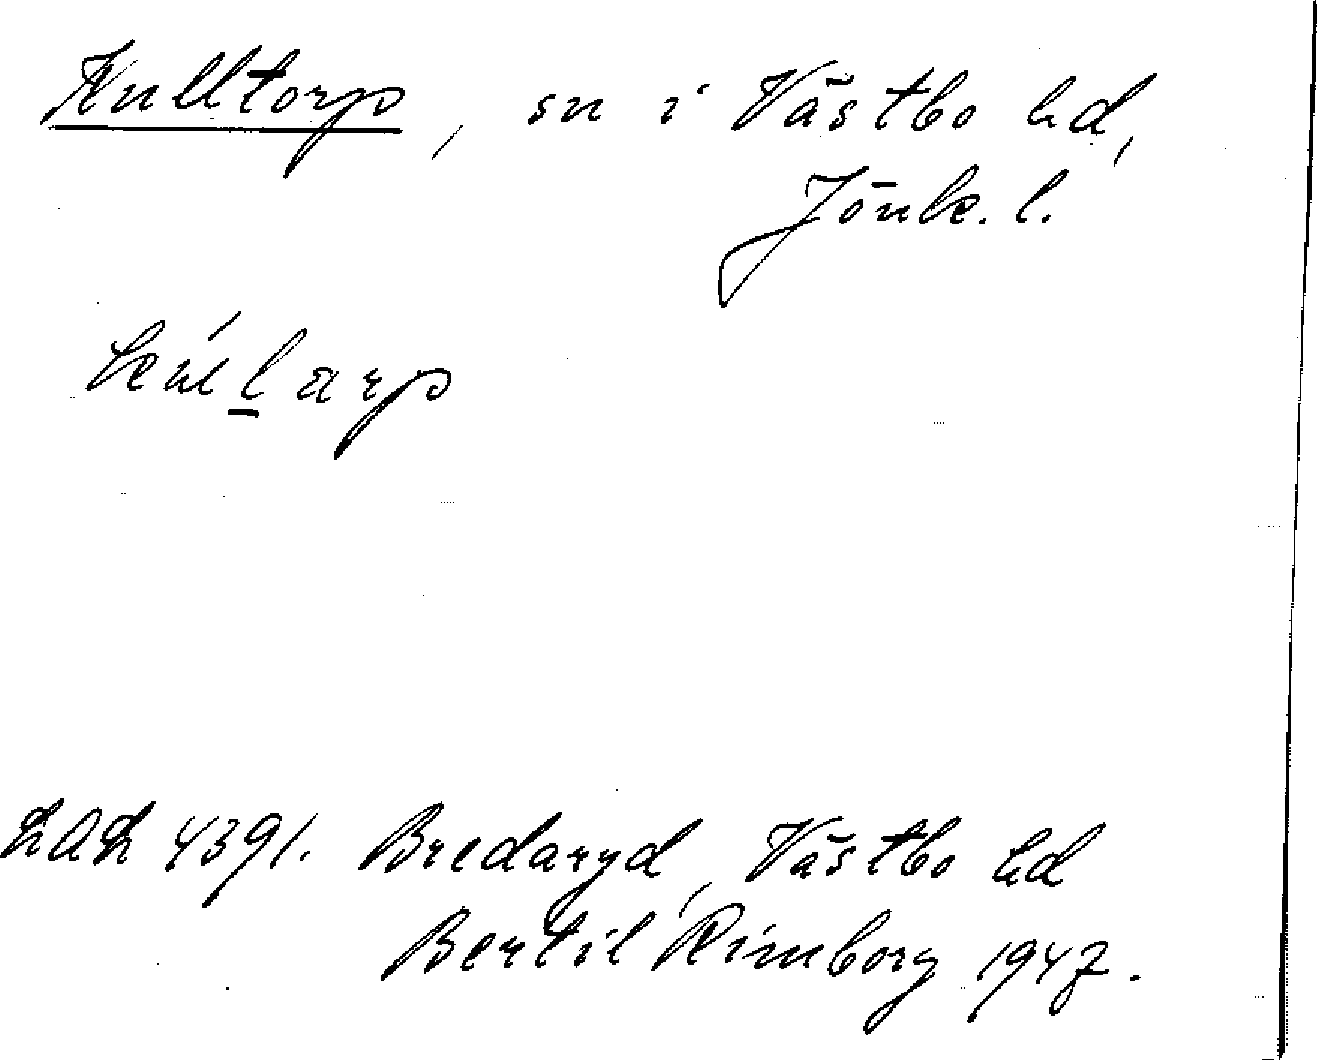 Kulltorp, sn i Västbo hd,
Jönk. l.
LAL 4391. Bredaryd, Västbo hd
Bertil Rimborg 1947.